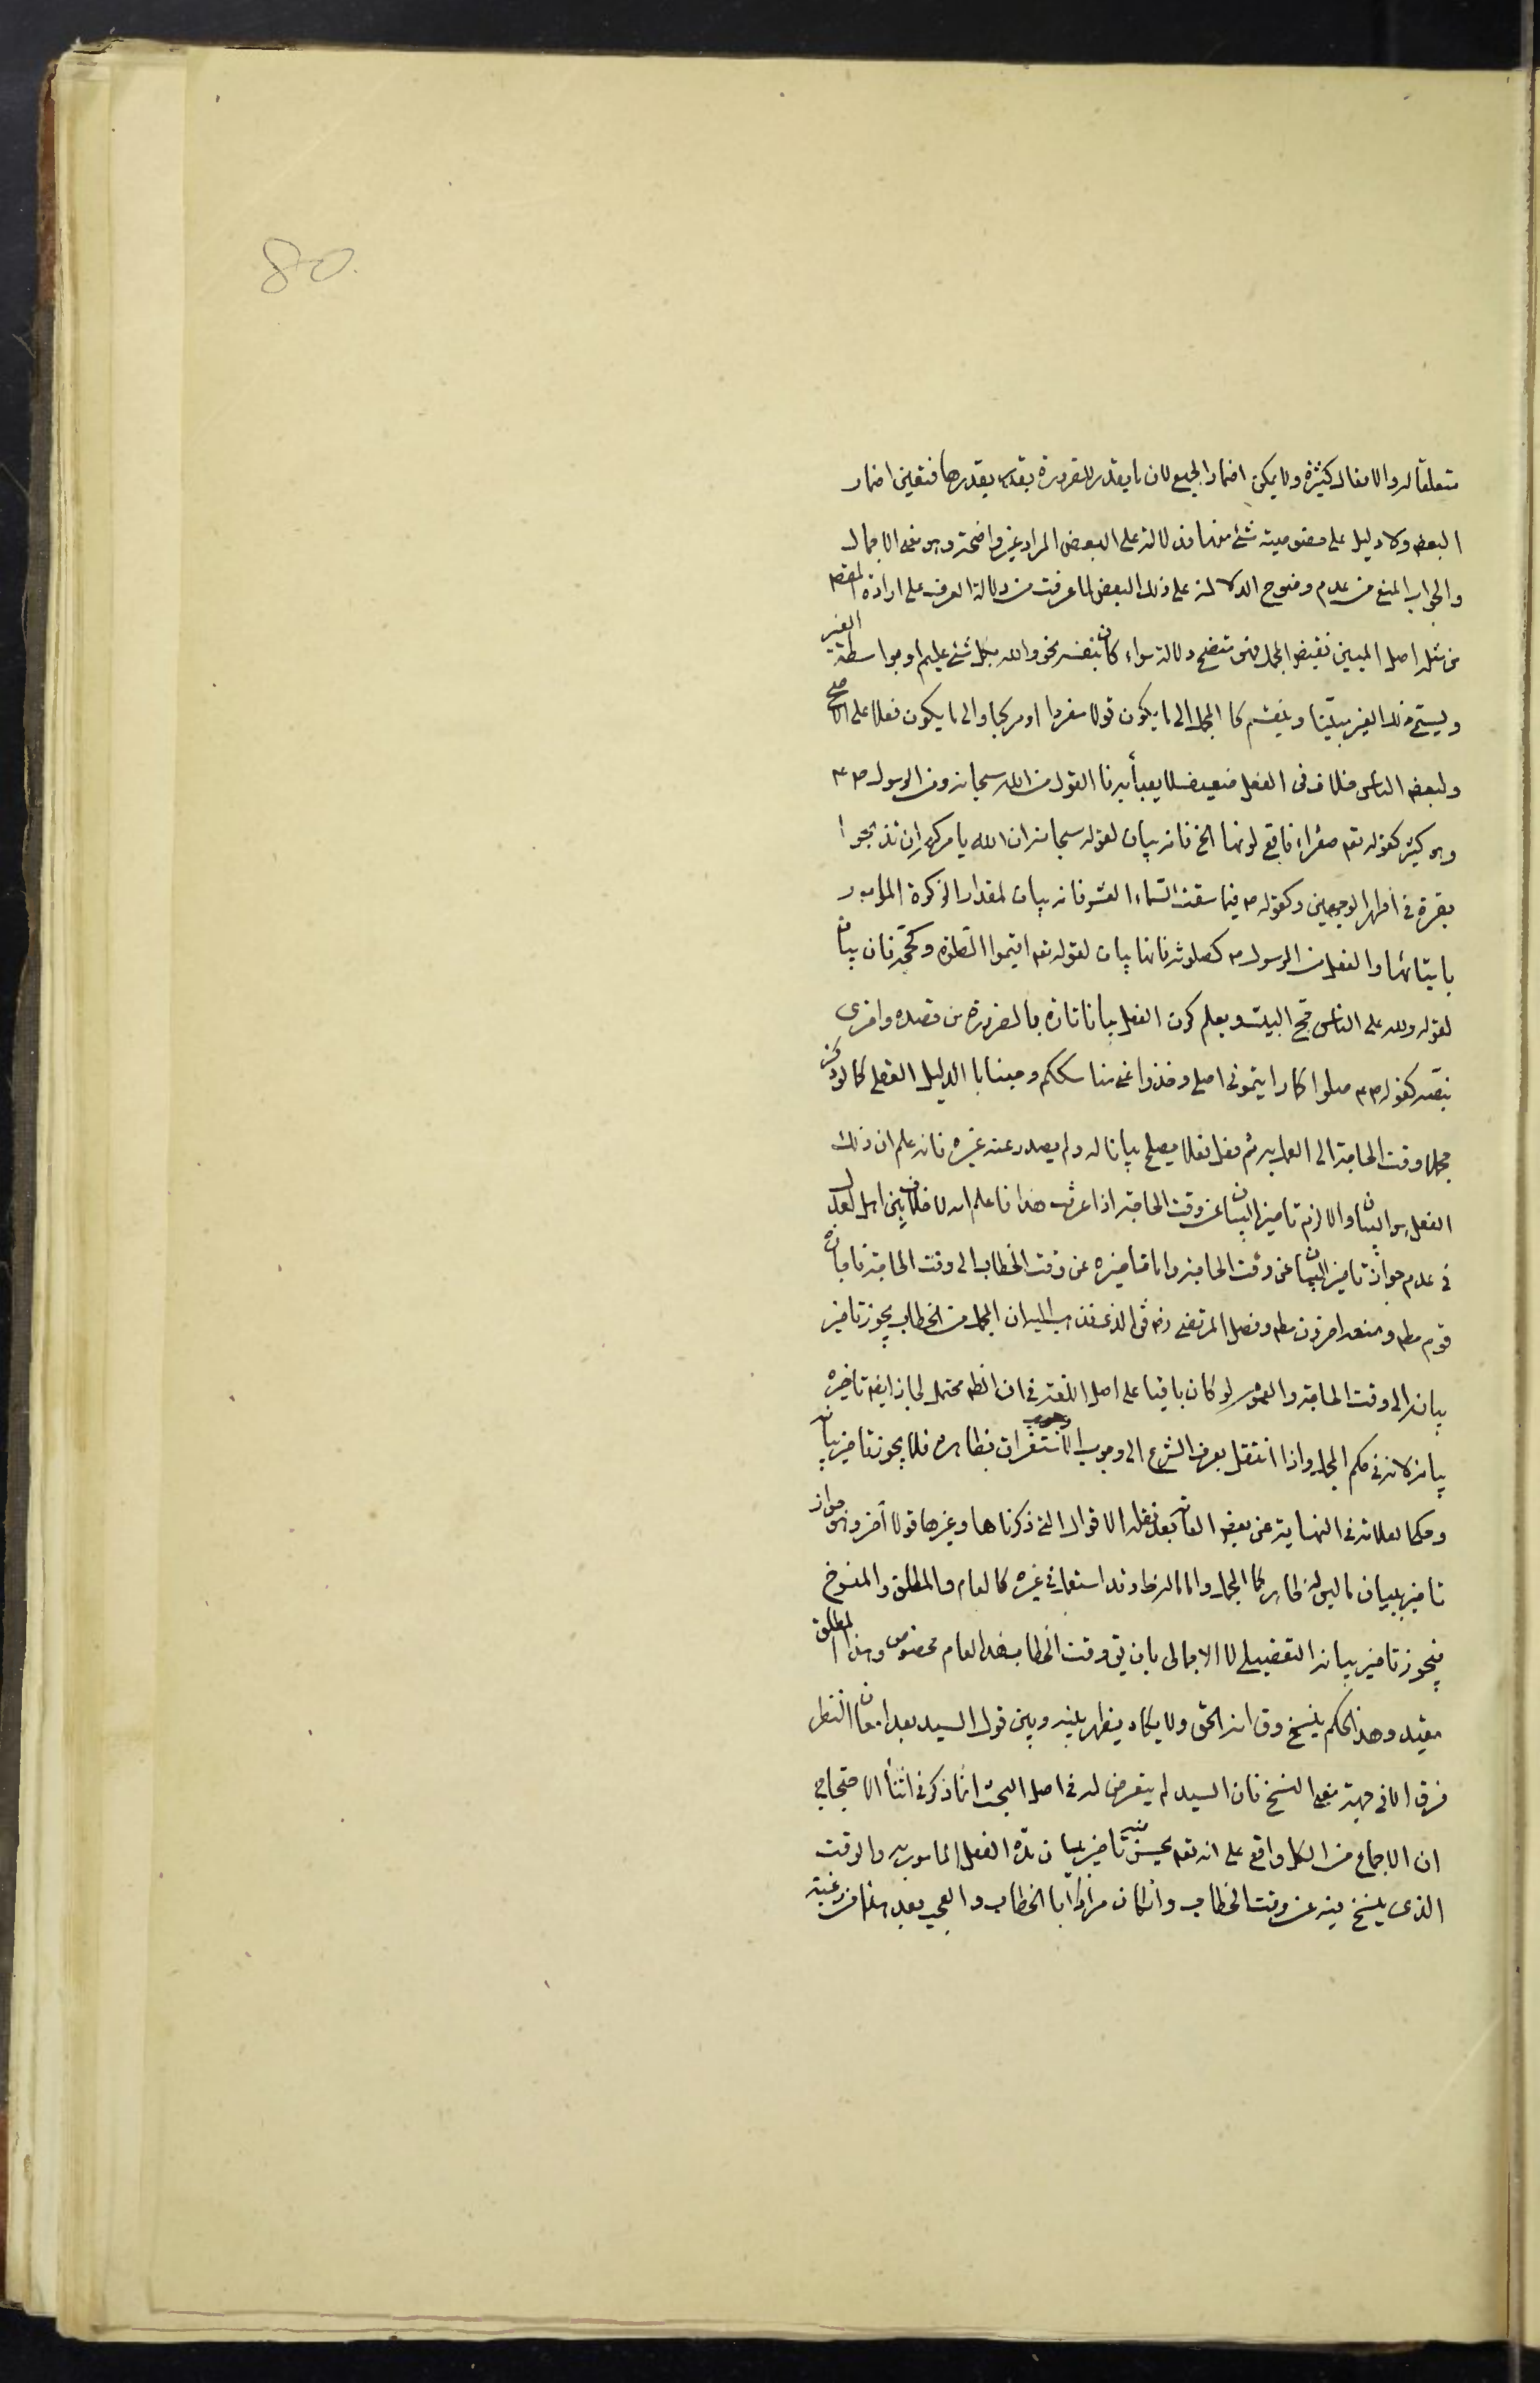 80
متعلقا له والافعال كثيرة ولا يمكن اضمار الجميع لان ما يقدر للضرورة يقدر بقدرها فتعين اضمار
البعض ولا دليل على خصوصية شئ منها فدلالته على البعض المراد غير واضحة وهو معنى الاجمال
والجواب المنع من عدم وضوح الدلالة على ذلك البعض لما عرفت من دلالة العرف على ارادة المقصود
من مثله اصل المبين نقيض المجمل فهو متضح دلالة سواء كان بنفسه نحو والله بكل شئ عليم او بواسطة الغير
ويسمى ذلك الغير مبيّنا وينقسم كالمجمل الى ما يكون قولا مفردا او مركبا والى ما يكون فعلا على الاصح
ولبعض الناس خلاف في الفعل ضعيف لا يعبأ به فالقول من الله سبحانه ومن الرسول ص ع
وهو كثير كقوله تعه صفراء فاقع لونها الخ فانه بيان لقوله سبحانه ان الله يامركم ان تذبحوا
بقرة في اظهر الوجهين وكقوله ص فيما سقت السماء العشر فانه بيان لمقدار الزكوة المامور
بايتائها والفعل من الرسول ص كصلوته فانها بيان لقوله تعه اقيموا الصلوة وكحجه فان بيان
لقوله ولله على الناس حج البيت ويعلم كون الفعل بيانا تارة بالضرورة من قصده واخرى
بنصه كقوله ص ع صلوا كما رايتموني اصلي وخذوا عني مناسككم وحينا بالدليل العقلي كما لو ذكر
مجملا وقت الحاجة الى العمل به ثم فعل فعلا يصلح بيانا له ولم يصدر عنه غيره فانه علم ان ذلك
الفعل هو البيان والا لزم تاخير البيان عن وقت الحاجة اذا عرفت هذا فاعلم انه لا خلاف بين اهل العدل
في عدم جواز تاخير البيان عن وقت الحاجة واما تاخيره عن وقت الخطاب الى وقت الحاجة فاجازه
قوم مطه ومنعه اخرون مطه وفصل المرتضى رضه فق الذي نذهب اليه ان المجمل من الخطاب يجوز تاخير
بيانه الى وقت الحاجة والعموم لو كان باقيا على اصل اللغة في ان الظه محتمل لجاز ايضه تاخيره
بيانه لانه في حكم المجمل واذا انتقل بعرف الشرع الى وجوب الاستغراق بظاهره فلا يجوز تاخير بيانه
وحكى العلامة في النهاية عن بعض العامة بعد نقله الاقوال التي ذكرناها وغيرها قولا آخر وهو جواز
تاخير بيان ما ليس له ظاهر كالمجمل واما ماله ظاهر وقد استعمل في غيره كالعام والمطلق والمنسوخ
فيجوز تاخير بيانه التفصيلي لا الاجمالي بان يق وقت الخطاب هذا العام مخصوص وهذا المطلق
مقيد وهذا الحكم ينسخ وق انه الحق ولا يكاد يظهر بينه وبين قول السيد بعد امعان النظر
فرق الا في جهة معنى النسخ فان السيد لم يتعرض له في اصل البحث انما ذكر في اثناء الاحتجاج
ان الاجماع من الكل واقع على انه تعه يحسن منه تاخير بيان مدة الفعل المامور به والوقت
الذي ينسخ فيه عن وقت الخطاب وان كان مرادا بالخطاب والعجب بعد هذا من رغبته